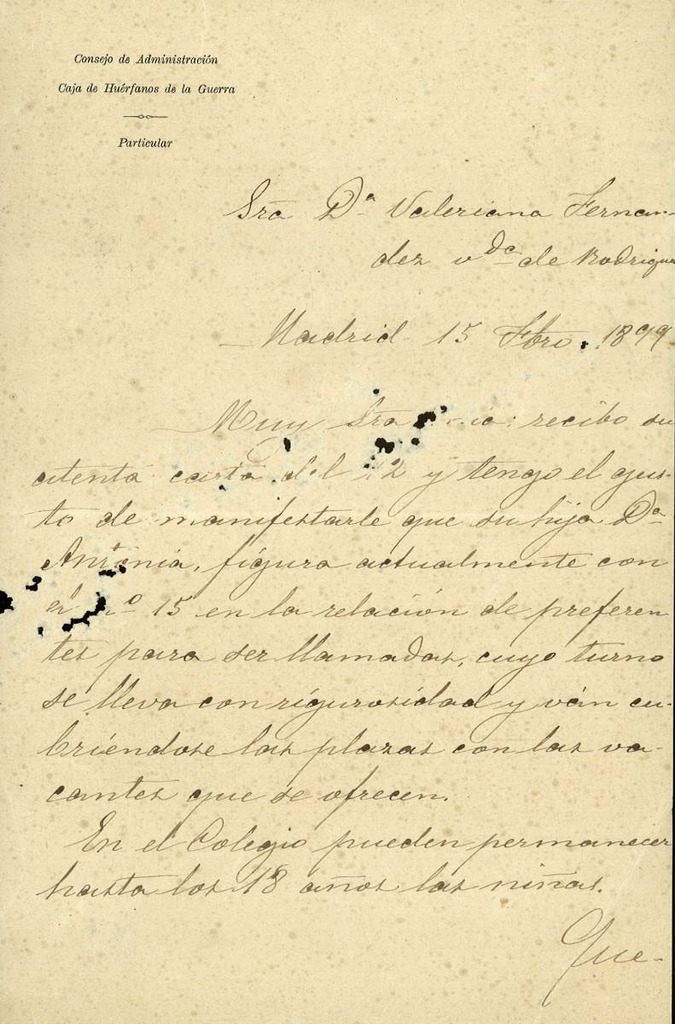 Consejo de Administración
Caja de Huérfanos de la Guerra
Particular
Sra Dª Valeriana Fernan-
dez vda de Rodrigue
Madrid 15 Fbro. 1899
Muy Sra mia: recibo su
atenta carta del 12 y tengo el gus-
to de manifestarle que su hija Dª
Antonia, figura actualmente con
el nº 15 en la relación de preferen
tes para ser llamadas, cuyo turno
se lleva con rigurosidad y ván cu-
briéndose las plazas con las va-
cantes que se ofrecen.
En el Colegio pueden permanecer
hasta los 18 años las niñas.
Que-